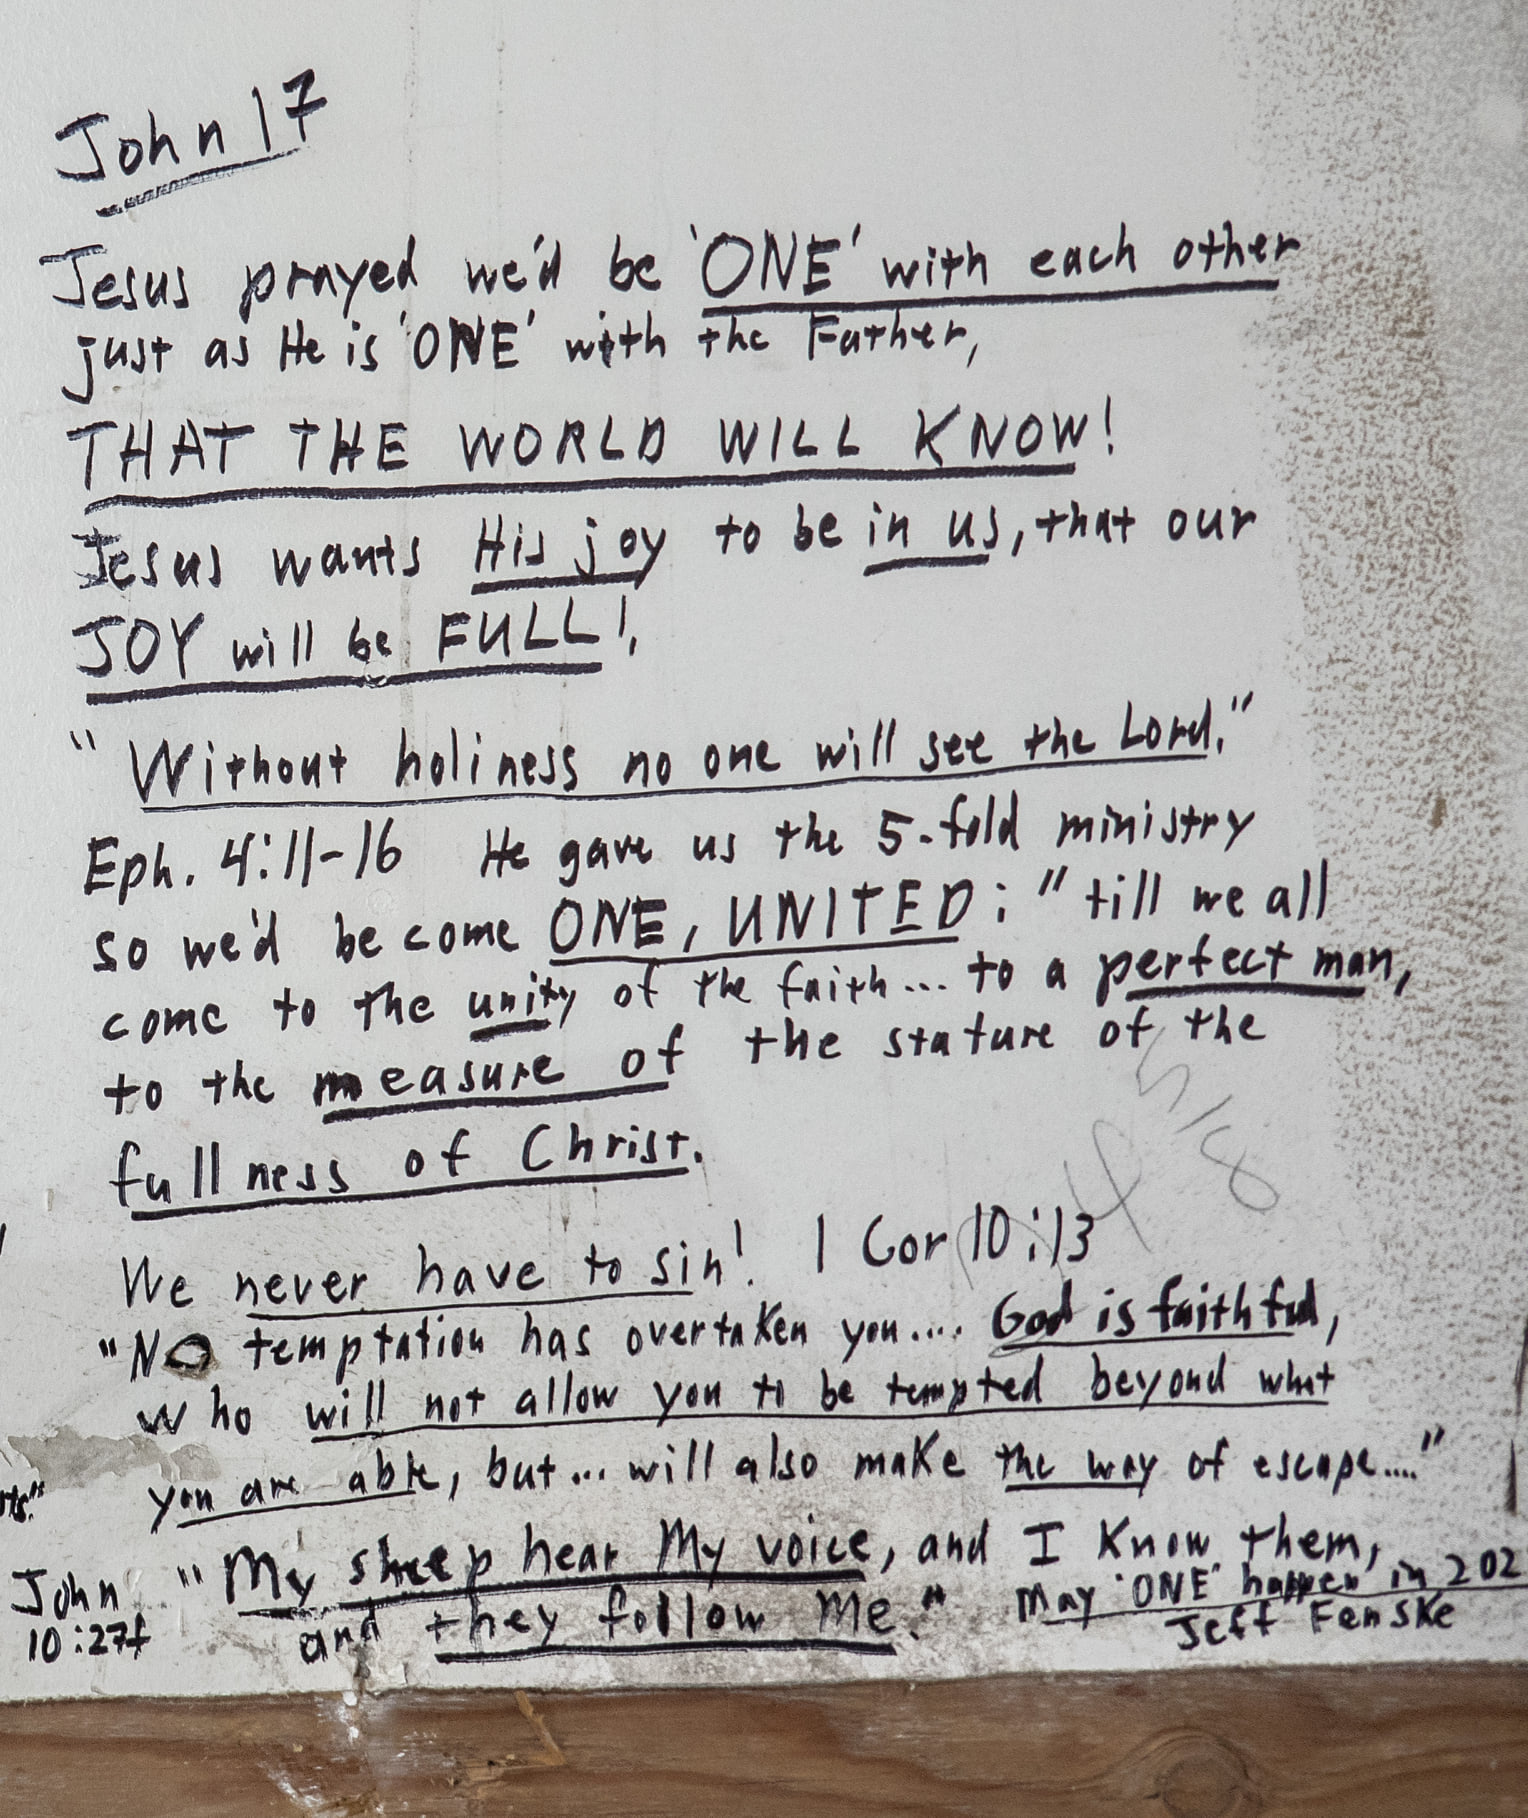 John 17
Jesus prayed we'd be 'ONE' with each other
just as He is 'ONE' with the Father,
THAT THE WORLD WILL KNOW!
Jesus wants His joy to be in us, that our
JOY will be FULL!,
"Without holiness no one will see the Lord."
Eph. 4:11-16 He gave us the 5-fold ministry
so we'd become ONE, UNITED: "till we all
come to the unity of the faith... to a perfect man,
to the measure of the stature of the
fullness of Christ.
We never have to sin! 1 Cor 10:13
"NO temptation has overtaken you.... God is faithful,
who will not allow you to be tempted beyond what
you are able, but... will also make the way of escape...."
John 10:27f
"My sheep hear My voice, and I Know them,
and they follow Me."
May 'ONE' happen in 202
Jeff Fenske